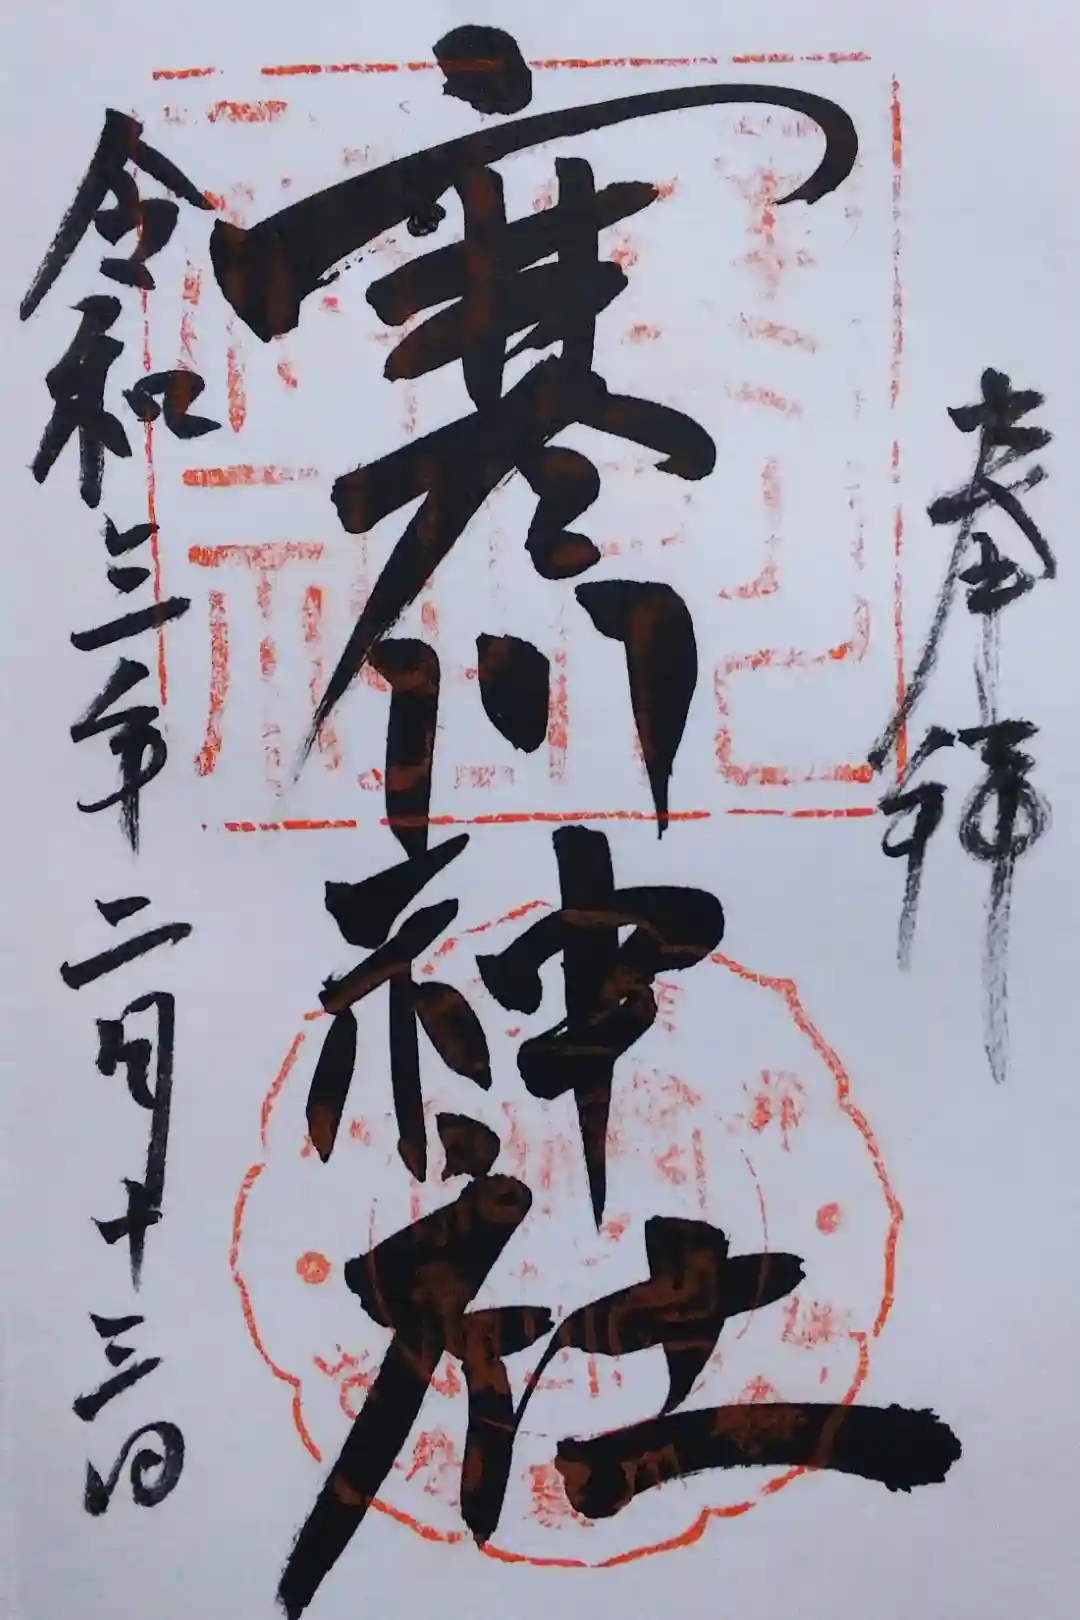 奉拝
寒川神社
令和三年二月十三日